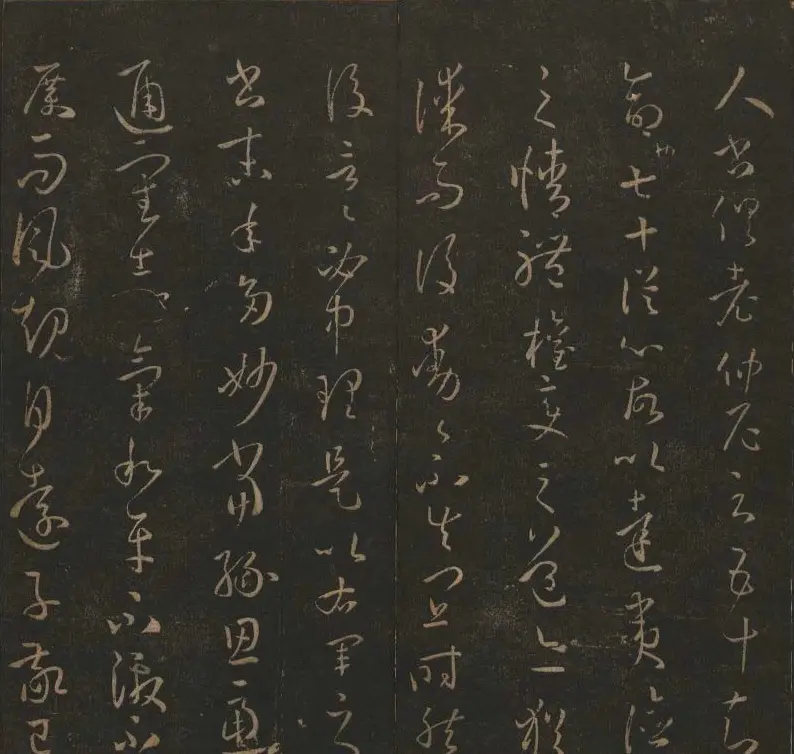 人書俱老仲尼云五十知
命也七十從心故以達夷險
之情體權變之道亦猶
謀而後動々不失宜時然
後言々必中理是以右軍之
書末年多妙當緣思慮
通審志氣和平不激不
厲而風規自遠子敬已